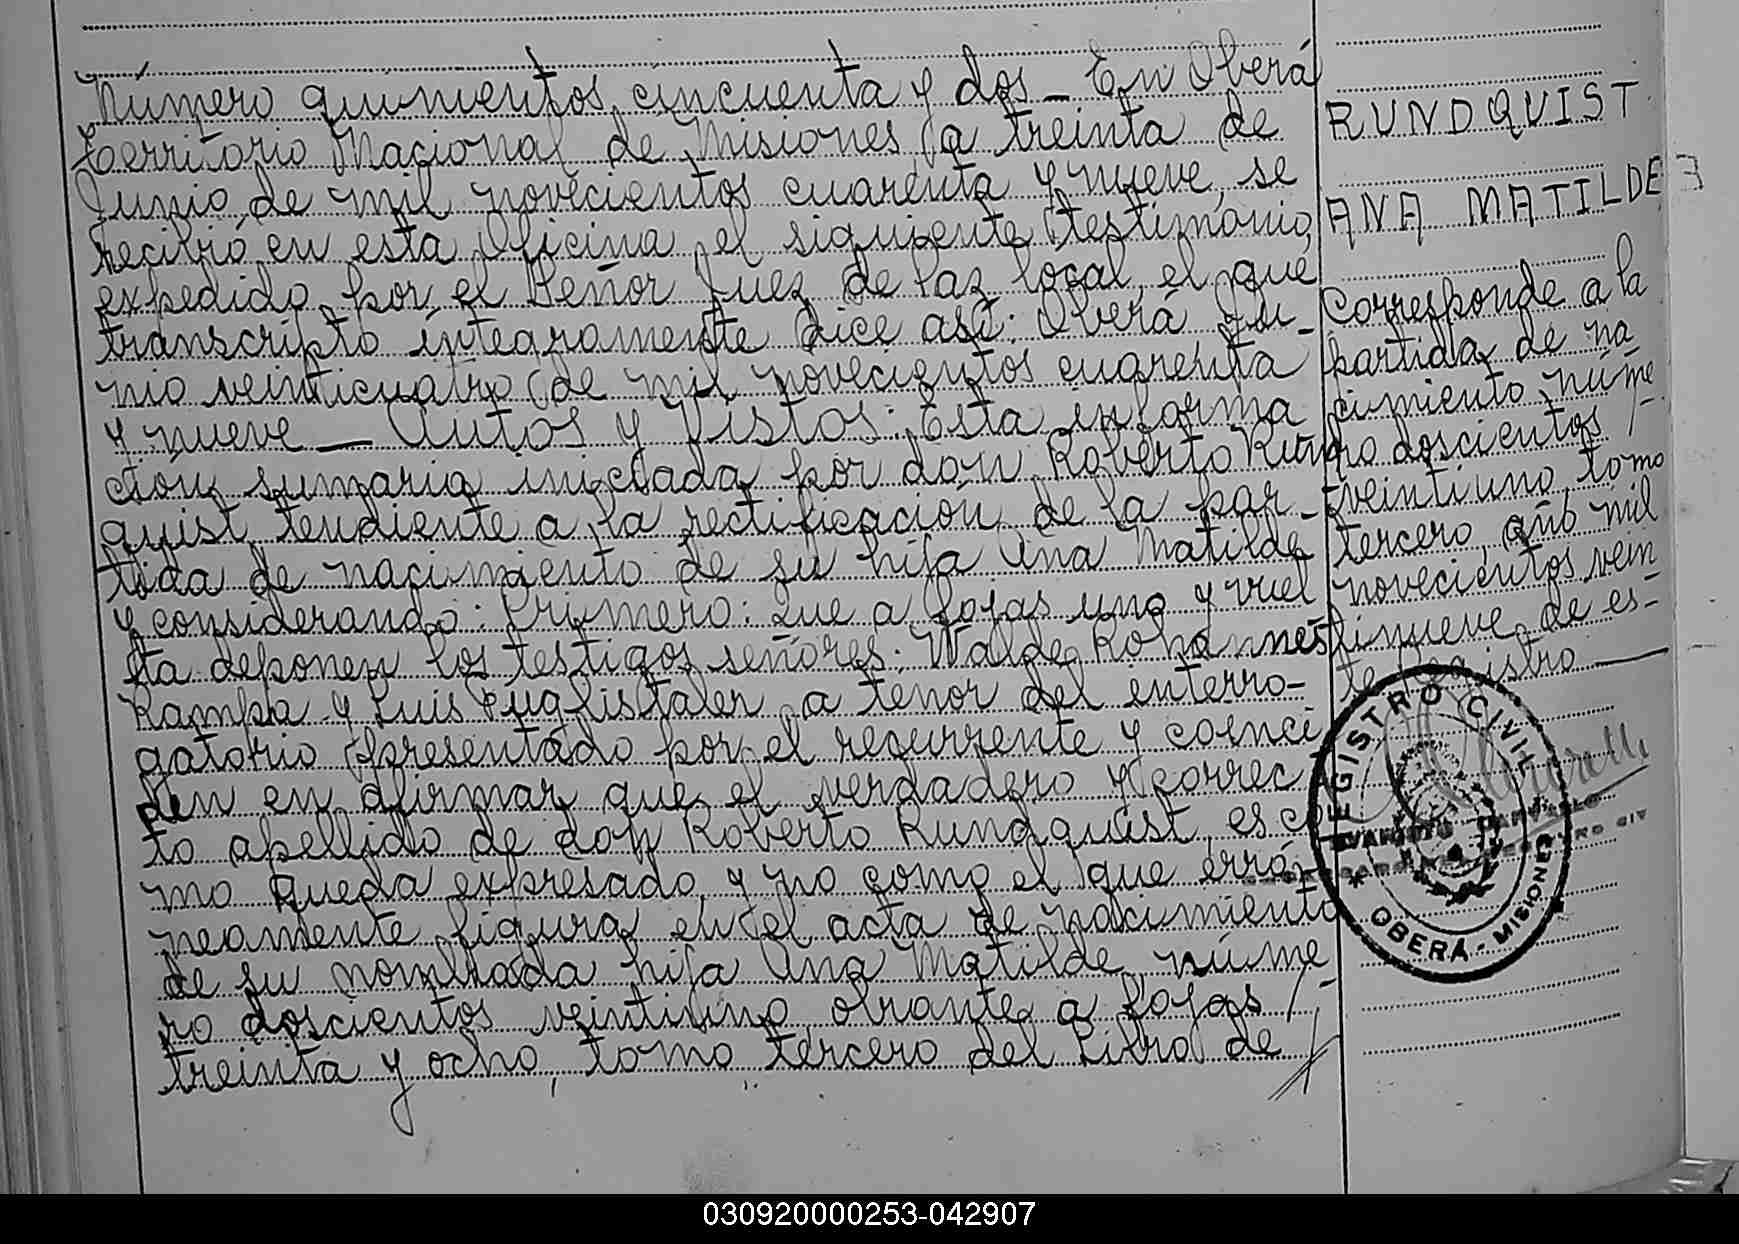 Número quinientos cincuenta y dos — En Oberá
territorio Nacional de Misiones, a treinta de
Junio de mil novecientos cuarenta y nueve, se
recibió en esta Oficina el siguiente testimonio,
expedido por el Señor Juez de Paz local, el que
transcripto íntegramente dice así: Oberá Ju-
nio veinticuatro de mil novecientos cuarenta
y nueve — Autos y Vistos: Esta informa
ción sumaria iniciada por don Roberto Rund
quist, tendiente a la rectificación de la par-
tida de nacimiento de su hija Ana Matilde
y considerando: Primero: Que a fojas uno y vuel
ta deponen los testigos señores: Walde
Rampa y Luis a tenor del enterro-
gatorio presentado por el recurrente y coinci
den en afirmar que el verdadero y correc
to apellido de don Roberto Rundquist, es co
mo queda expresado, y no como el que erró-
neamente figura en el acta de nacimiento
de su nombrada hija Ana Matilde, núme
ro doscientos veintiuno, obrante a fojas /-
treinta y ocho, tomo tercero del Libro de //
RUNDQUIST
ANA MATILDE
Corresponde a la
partida de na
cimiento núme
ro doscientos /-
veintiuno, tomo
tercero, año mil
novecientos vein
tinueve, de es-
te Registro —
REGISTRO CIVIL
* OBERÁ - MISIONES
030920000253-042907